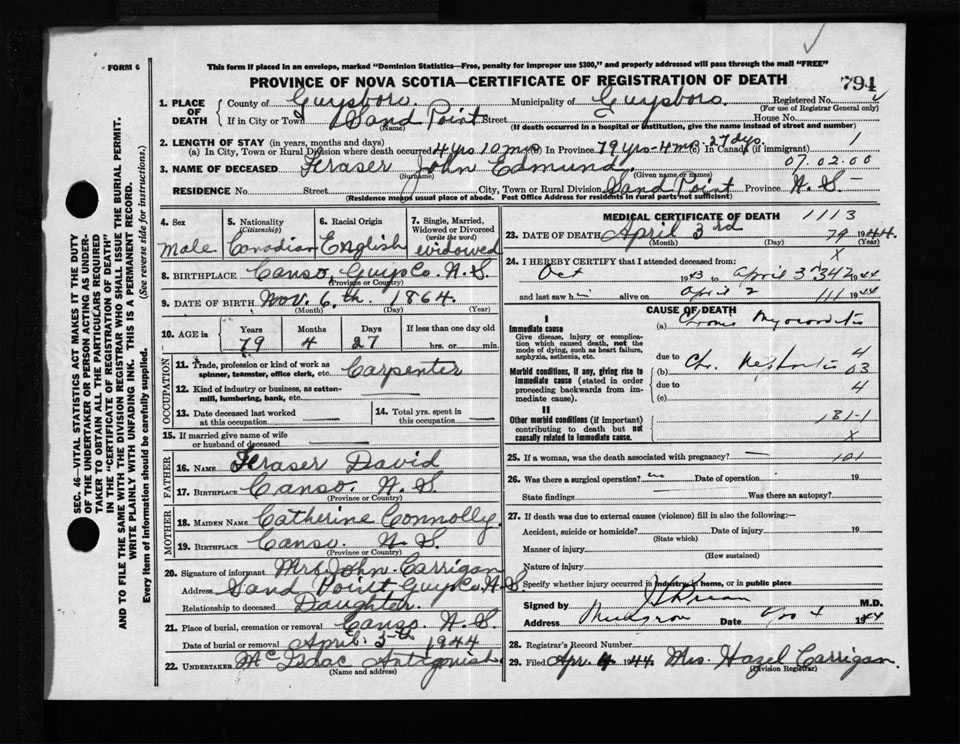 FORM 6
This form if placed in an envelope, marked "Dominion Statistics—Free, penalty for improper use $300," and properly addressed will pass through the mail "FREE"
PROVINCE OF NOVA SCOTIA—CERTIFICATE OF REGISTRATION OF DEATH
794
1. PLACE OF DEATH County of Guysboro. Municipality of Guysboro. Registered No.
(For use of Registrar General only)
If in City or Town Sand Point Street House No.
(Name) (If death occurred in a hospital or institution, give the name instead of street and number)
2. LENGTH OF STAY (in years, months and days)
(a) In City, Town or Rural Division where death occurred 4 yrs 10 mos (b) In Province 79 yrs-4 ms-27 dys. (c) In Canada (if immigrant) 1
3. NAME OF DECEASED Feraser John Edmund 07.02.00
(Surname) (Given name or names)
RESIDENCE No. Street City, Town or Rural Division Sand Point Province N. S.
(Residence means usual place of abode. Post Office Address for residents in rural parts not sufficient)
4. Sex Male
5. Nationality (Citizenship) Canadian
6. Racial Origin English
7. Single, Married, Widowed or Divorced (write the word) widowed
8. BIRTHPLACE Canso, Guys Co. N. S.
(Province or Country)
9. DATE OF BIRTH Nov. 6th. 1864.
(Month) (Day) (Year)
10. AGE in Years 79 Months 4 Days 27 If less than one day old hrs. or min.
OCCUPATION
11. Trade, profession or kind of work as spinner, teamster, office clerk, etc. Carpenter
12. Kind of industry or business, as cotton-mill, lumbering, bank, etc.
13. Date deceased last worked at this occupation
14. Total yrs. spent in this occupation
15. If married give name of wife or husband of deceased
FATHER
16. NAME Feraser David
17. BIRTHPLACE Canso. N. S.
(Province or Country)
MOTHER
18. MAIDEN NAME Catherine Connolly.
19. BIRTHPLACE Canso. N. S.
(Province or Country)
20. Signature of informant Mrs. John Carrigan
Address Sand Point Guys Co. N. S.
Relationship to deceased Daughter.
21. Place of burial, cremation or removal Canso. N. S.
Date of burial or removal April. 5th 1944
22. UNDERTAKER McIsaac Antigonish
(Name and address)
MEDICAL CERTIFICATE OF DEATH 1113
23. DATE OF DEATH April 3rd 79 1944
(Month) (Day) (Year)
24. I HEREBY CERTIFY that I attended deceased from: X
Oct 1943 to April 3 342 1944
and last saw h alive on April 2 111 1944
CAUSE OF DEATH
I
Immediate cause
Give disease, injury or complication which caused death, not the mode of dying, such as heart failure, asphyxia, asthenia, etc.
(a) Myocarditis
due to 4
Morbid conditions, if any, giving rise to immediate cause (stated in order proceeding backwards from immediate cause).
(b) Chr. Nephritis 03
due to 4
(c)
II
Other morbid conditions (if important) contributing to death but not causally related to immediate cause.
131-1
X
25. If a woman, was the death associated with pregnancy? 101
26. Was there a surgical operation? no Date of operation 19
State findings Was there an autopsy?
27. If death was due to external causes (violence) fill in also the following:—
Accident, suicide or homicide? Date of injury 19
(State which)
Manner of injury
(How sustained)
Nature of injury
Specify whether injury occurred in industry, in home, or in public place
Signed by M.D.
Address Date 1944
28. Registrar's Record Number
29. Filed Apr. 4 1944 Mrs. Hazel Carrigan.
(Division Registrar)
SEC. 46—VITAL STATISTICS ACT MAKES IT THE DUTY OF THE UNDERTAKER OR PERSON ACTING AS UNDERTAKER TO OBTAIN ALL THE PARTICULARS REQUIRED IN THE "CERTIFICATE OF REGISTRATION OF DEATH" AND TO FILE THE SAME WITH THE DIVISION REGISTRAR WHO SHALL ISSUE THE BURIAL PERMIT.
WRITE PLAINLY WITH UNFADING INK. THIS IS A PERMANENT RECORD.
Every item of Information should be carefully supplied. (See reverse side for instructions.)